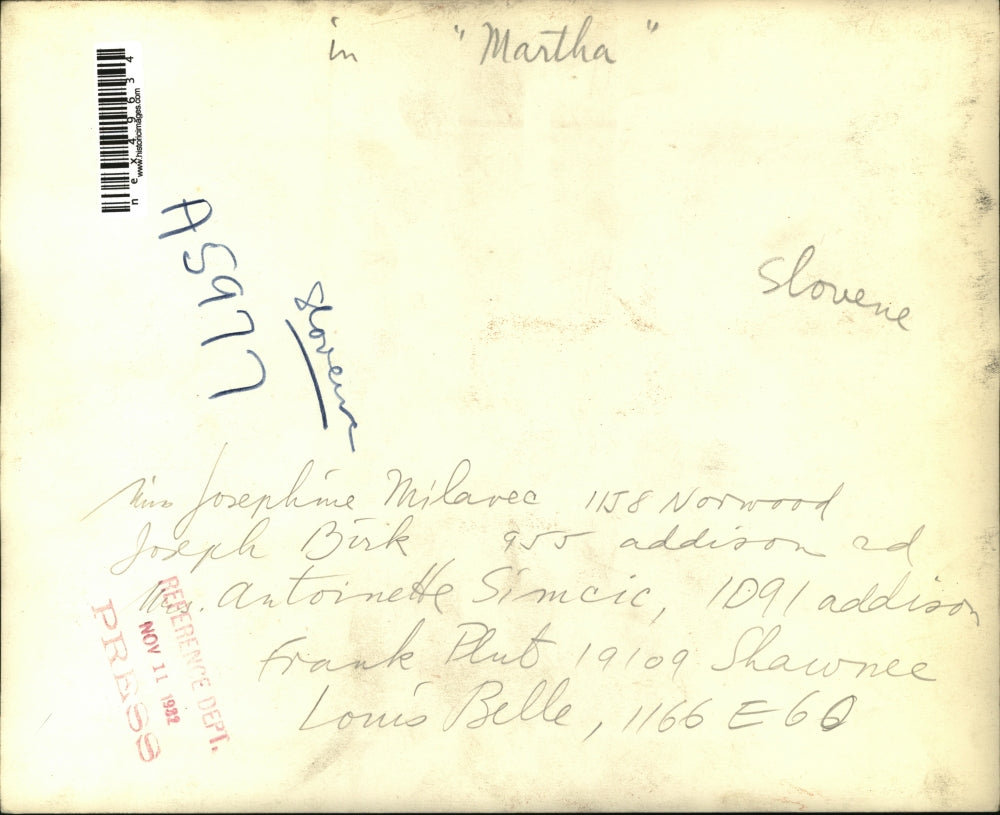 in "Martha"
nex49634
www.historicimages.com
A5977
Slovene
Slovene
Miss Josephine Milavec 1158 Norwood
Joseph Birk 955 addison rd
Mrs. Antoinette Simcic, 1091 addison
Frank Plut 19109 Shawnee
Louis Belle, 1166 E 60
REFERENCE DEPT.
NOV 11 1982
PRESS